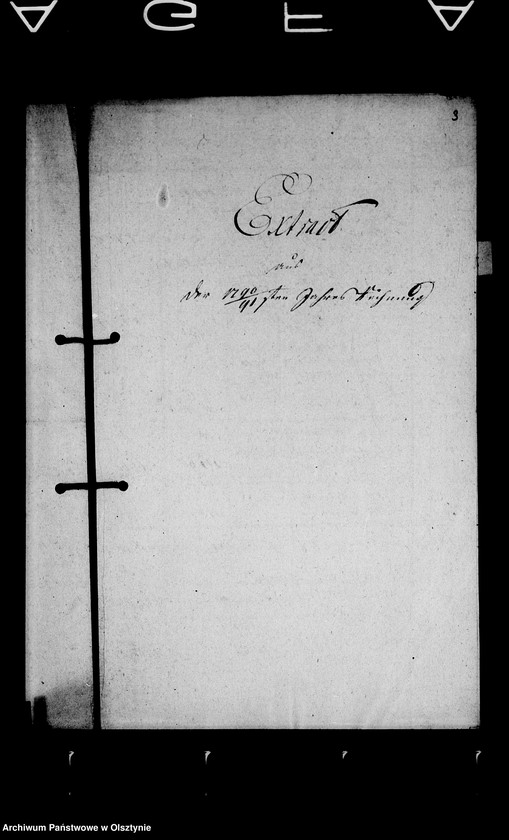 AGFA
3
Extract
aus
der 1790/91sten Jahres Rechnung
Archiwum Państwowe w Olsztynie